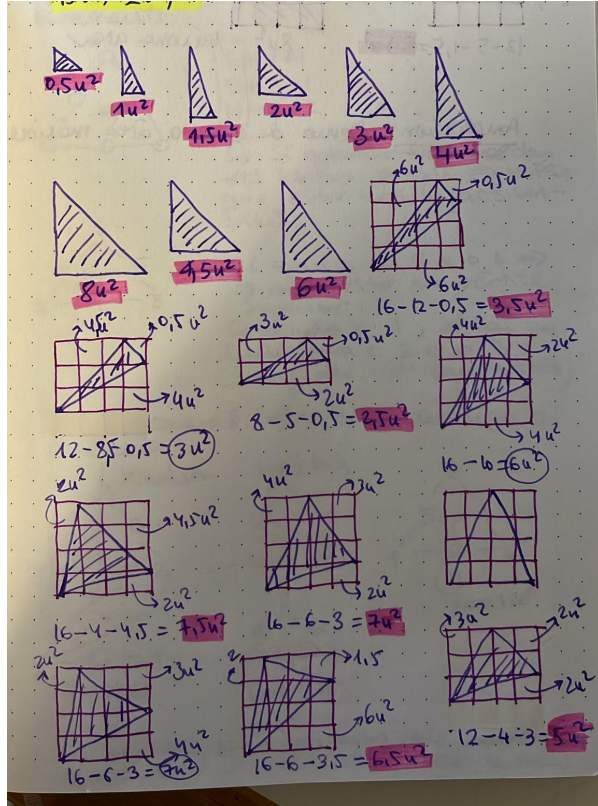 0,5u²
1u²
1,5u²
2u²
3u²
4u²
8u²
4,5u²
6u²
6u²
0,5u²
6u²
16-12-0,5 = 3,5u²
4u²
0,5u²
4u²
12-8-0,5 = 3u²
3u²
0,5u²
2u²
8-5-0,5 = 2,5u²
4u²
2u²
4u²
16-10 = 6u²
2u²
4,5u²
2u²
16-4-4,5 = 7,5u²
4u²
3u²
2u²
16-6-3 = 7u²
2u²
3u²
4u²
16-6-3 = 7u²
2
1,5
6u²
16-6-3,5 = 6,5u²
3u²
2u²
2u²
12-4-3 = 5u²